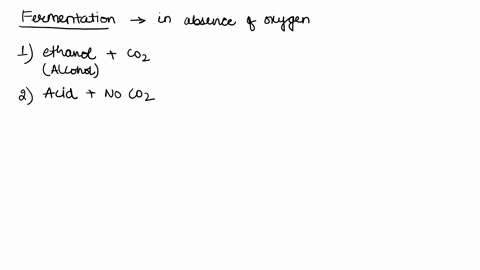 Fermentation → in absence of oxygen
1) ethanol + CO2
(Alcohol)
2) Acid + NO CO2